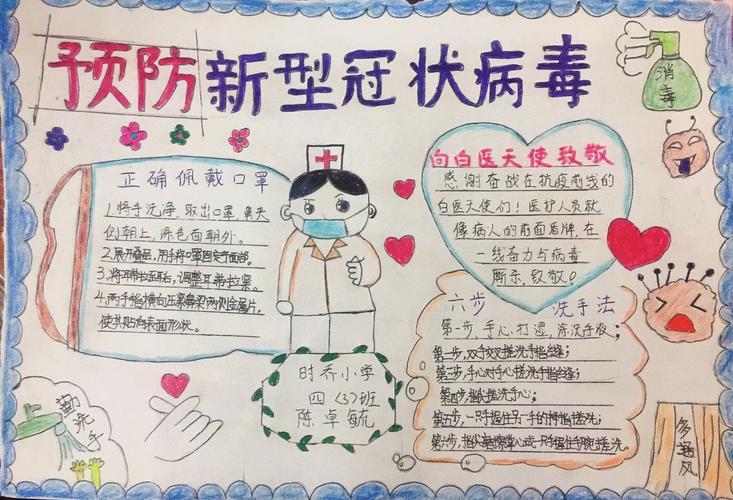 预防新型冠状病毒
消毒
正确佩戴口罩
1.将手洗净,取出口罩,鼻夹
侧朝上,深色面朝外。
2.展开叠层,用手将口罩固定于面部。
3.将耳带拉至耳后,调整耳带拉紧。
4.两手指横向压紧鼻梁两侧金属片,
使其贴合表面形状。
向白医天使致敬
感谢奋战在抗疫前线的
白医天使们!医护人员就
像病人的前面盾牌,在
一线奋力与病毒
厮杀,致敬。
六步 洗手法
第一步,手心打湿,涂洗手液;
第二步,双手交叉搓洗手指缝;
第三步,手心对手心搓洗手指缝;
第四步,搓洗手心;
第五步,一只手握住另一手的拇指搓洗;
第六步,
时乔小学
四〈3〉班
陈卓毓
勤洗手
多通风